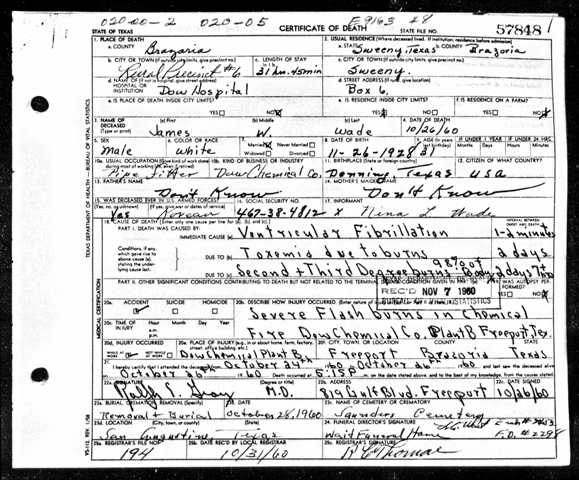 02000-2 020-05 E9163 #8
STATE OF TEXAS CERTIFICATE OF DEATH STATE FILE NO. 57848
1. PLACE OF DEATH
a. COUNTY Brazoria
2. USUAL RESIDENCE (Where deceased lived. If institution: residence before admission)
a. STATE Sweeny, Texas b. COUNTY Brazoria
b. CITY OR TOWN (If outside city limits, give precinct no.) Rural Precinct #6
c. LENGTH OF STAY 31 hr. 45 min
c. CITY OR TOWN (If outside city limits, give precinct no.) Sweeny
d. NAME OF (If not in hospital, give street address) HOSPITAL OR INSTITUTION Dow Hospital
d. STREET ADDRESS (If rural, give location) Box 6
e. IS PLACE OF DEATH INSIDE CITY LIMITS? YES NO
e. IS RESIDENCE INSIDE CITY LIMITS? YES NO
f. IS RESIDENCE ON A FARM? YES NO
3. NAME OF DECEASED (Type or print) (a) First James (b) Middle W. (c) Last Wade
4. DATE OF DEATH 10/26/60
5. SEX Male
6. COLOR OR RACE White
7. Married Never Married Widowed Divorced
8. DATE OF BIRTH 11-26-1928
9. AGE 31
IF UNDER 1 YEAR IF UNDER 24 HRS.
10a. USUAL OCCUPATION Pipe Fitter
10b. KIND OF BUSINESS OR INDUSTRY Dow Chemical Co.
11. BIRTHPLACE (State or foreign country) Denning, Texas
12. CITIZEN OF WHAT COUNTRY? USA
13. FATHER'S NAME Don't Know
14. MOTHER'S MAIDEN NAME Don't Know
15. WAS DECEASED EVER IN U.S. ARMED FORCES? Yes Korean
16. SOCIAL SECURITY NO. 467-38-4812
17. INFORMANT x Nina L. Wade
18. CAUSE OF DEATH
PART I. DEATH WAS CAUSED BY:
IMMEDIATE CAUSE (a) Ventricular Fibrillation 1-2 minutes
DUE TO (b) Toxemia due to burns 2 days
DUE TO (c) Second + Third Degree burns 98% of Body 2 days
REC'D NOV 7 1960
BUREAU OF VITAL STATISTICS
20a. ACCIDENT SUICIDE HOMICIDE
20b. DESCRIBE HOW INJURY OCCURRED. Severe Flash burns in Chemical
Fire Dow Chemical Co. Plant B Freeport Tex.
20c. TIME OF INJURY Hour Month Day Year
20d. INJURY OCCURRED WHILE AT WORK NOT WHILE AT WORK
20e. PLACE OF INJURY Dow Chemical Plant B
20f. CITY, TOWN, OR LOCATION Freeport COUNTY Brazoria STATE Texas
October 24th 1960 October 26th 1960
October 26th 1960
22a. SIGNATURE M.D.
22b. ADDRESS 819 Gulf Blvd. Freeport
22c. DATE SIGNED 10/26/60
23a. BURIAL, CREMATION, REMOVAL (Specify) Removal & Burial
23b. DATE October 28, 1960
23c. NAME OF CEMETERY OR CREMATORY Saunders Cemetery
23d. LOCATION (City, town, or county) (State) San Augustine Texas
24. FUNERAL DIRECTOR'S SIGNATURE Wait Funeral Home F.D. #2298
25a. REGISTRAR'S FILE NO. 194
25b. DATE REC'D BY LOCAL REGISTRAR 10/31/60
25c. REGISTRAR'S SIGNATURE
TEXAS DEPARTMENT OF HEALTH — BUREAU OF VITAL STATISTICS
MEDICAL CERTIFICATION